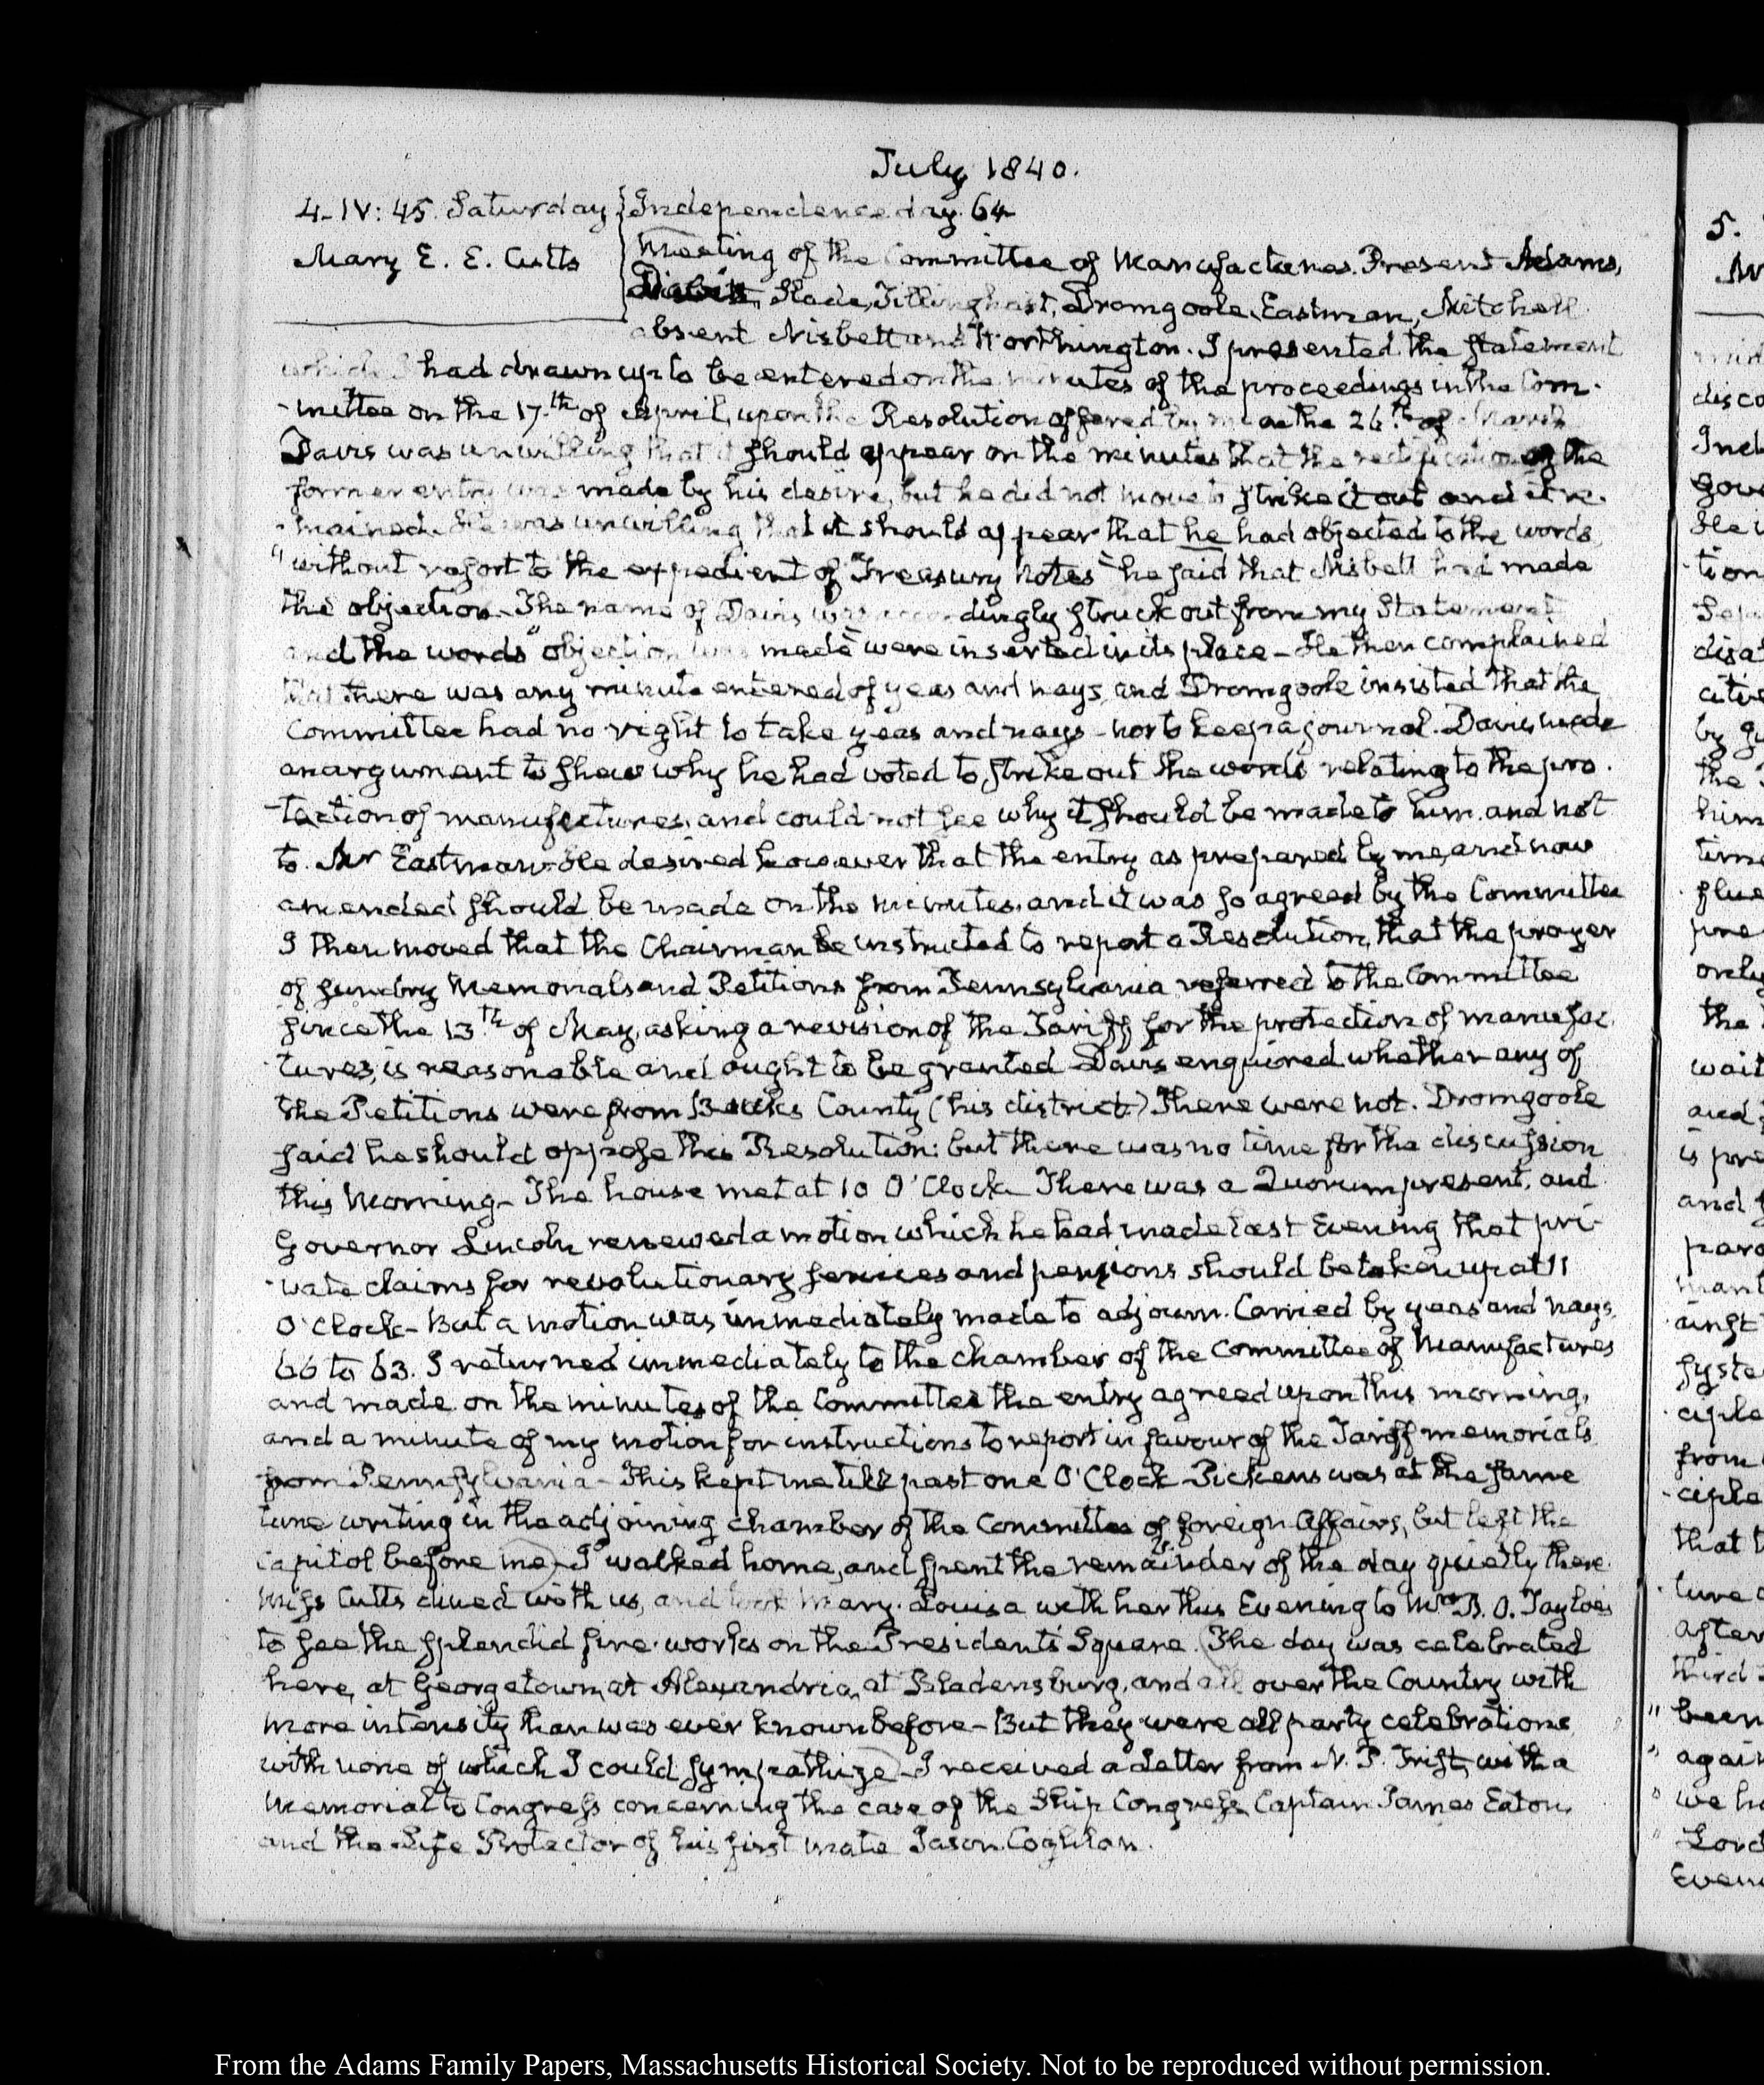 July 1840.
4. IV: 45. Saturday
Mary E. E. Cutts
Independence day. 64
Meeting of the Committee of Manufactures. Present Adams,
Slade, Tillinghast, Dromgoole, Eastman, Mitchell
absent Nisbett and Worthington. I presented the statement
which I had drawn up to be entered on the minutes of the proceedings in the Com-
-mittee on the 17.th of April, upon the Resolution offered by me on the 26.th of March
Davis was unwilling that it should appear on the minutes that the rectification of the
former entry was made by his desire, but he did not move to strike it out and it re-
-mained. He was unwilling that it should appear that he had objected to the words
"without resort to the expedient of Treasury Notes" he said that Nisbett had made
the objection. The name of Davis was accordingly struck out from my Statement
and the words "objection was made" were inserted in its place – He then complained
that there was any minute entered of yeas and nays, and Dromgoole insisted that the
Committee had no right to take yeas and nays – nor to keep a journal. Davis made
an argument to shew why he had voted to strike out the words relating to the pro-
-tection of manufactures, and could not see why it should be made to him and not
to Mr Eastman. He desired however that the entry as prepared by me, and now
amended should be made on the minutes, and it was so agreed by the Committee
I then moved that the Chairman be instructed to report a Resolution, that the prayer
of sundry Memorials and Petitions from Pennsylvania referred to the Committee
since the 13th of May, asking a revision of the Tariff for the protection of manufac-
-tures, is reasonable and ought to be granted Davis enquired whether any of
the Petitions were from Bucks County (his district.) There were not. Dromgoole
said he should oppose this Resolution: but there was no time for the discussion
this Morning – The house met at 10 O'Clock There was a Quorum present, and
Governor Lincoln renewed a motion which he had made last Evening that pri-
-vate claims for revolutionary services and pensions should be taken up at 11
O'Clock – But a motion was immediately made to adjourn. Carried by yeas and nays
66 to 63. I returned immediately to the chamber of the Committee of Manufactures
and made on the minutes of the Committee the entry agreed upon this morning,
and a minute of my motion for instructions to report in favour of the Tariff memorials
from Pennsylvania – This kept me till past one O'Clock Pickens was at the same
time writing in the adjoining chamber of the Committee of foreign Affairs, but left the
Capitol before me – I walked home, and spent the remainder of the day quietly there.
Miss Cutts dined with us, and took Mary-Louisa with her this Evening to Mrs B. O. Tayloe's
to see the splendid fire-works on the President's Square. The day was celebrated
here, at Georgetown, at Alexandria, at Bladensburg, and all over the Country with
more intensity than was ever known before – But they were all party celebrations
with none of which I could sympathize – I received a Letter from N. P. Trist, with a
Memorial to Congress concerning the case of the Ship Congress, Captain James Eaton,
and the Life Protector of his first mate Jason Coghlan.
5.
disco
gov
tion
by
the
him
time
pre
only
the
wait
and
is pre
and
syste
ciple
from
-ciple
that
after
third
" been
" again
" we ha
" Lord
Even
From the Adams Family Papers, Massachusetts Historical Society. Not to be reproduced without permission.